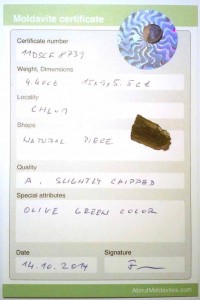 Moldavite certificate
Certificate number
11DSCF8731
Weight, Dimensions
4.40ct 15x9x5.5ct
Locality
CHLUM
Shape
NATURAL PIECE
Quality
A, SLIGHTLY CHIPPED
Special attributes
OLIVE GREEN COLOR
Date
Signature
14.10.2014
AboutMoldavites.com